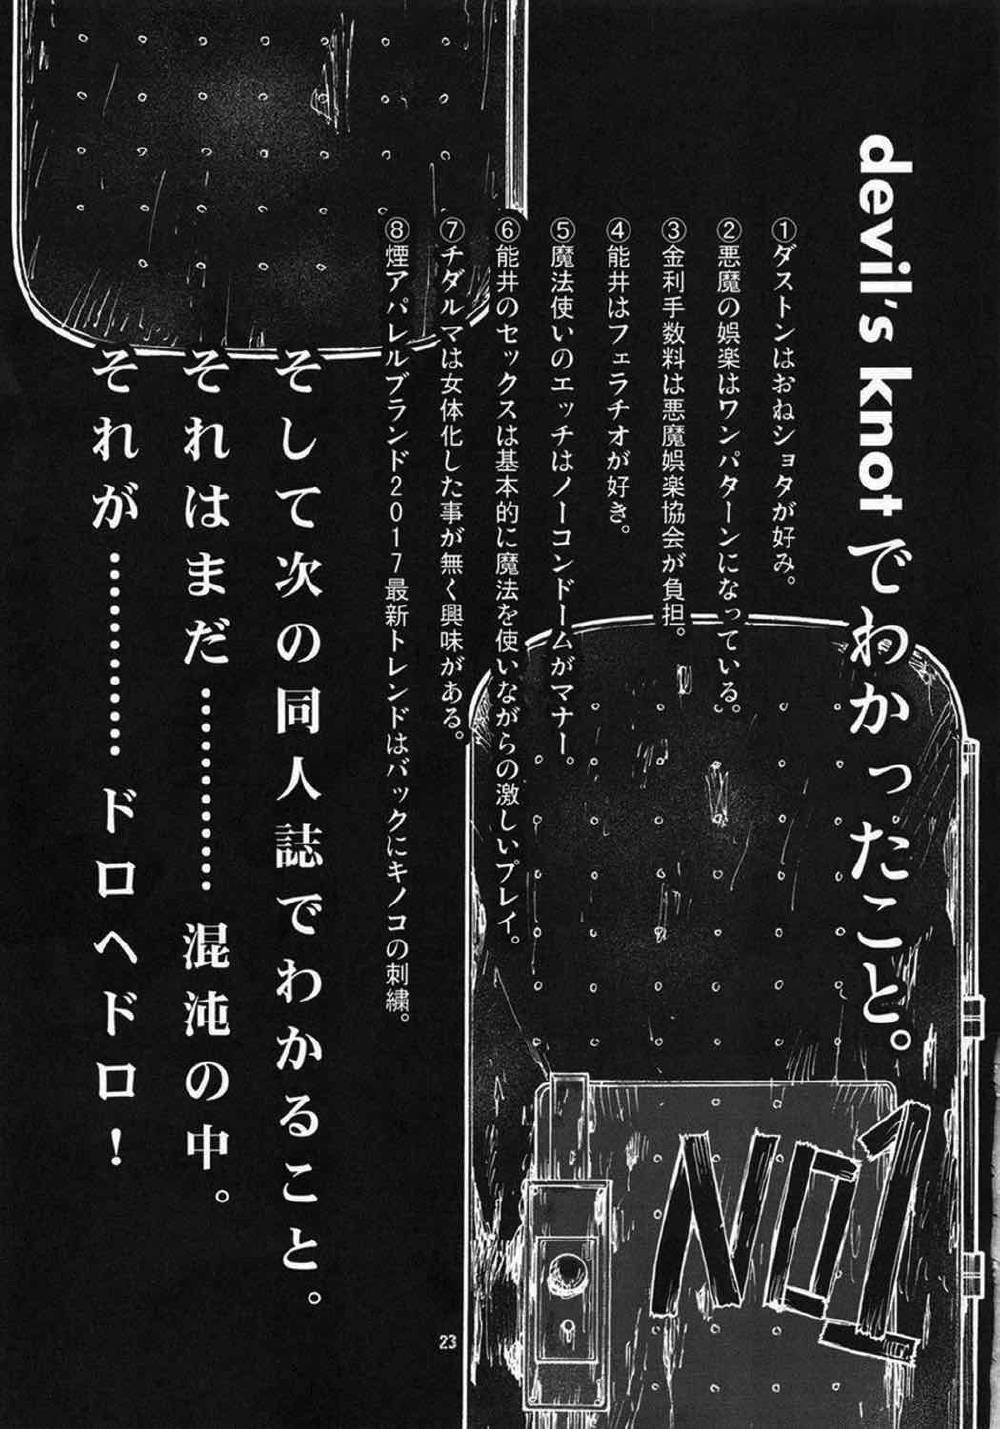 devil's knotでわかったこと。
①ダストンはおねショタが好み。
②悪魔の娯楽はワンパターンになっている。
③金利手数料は悪魔娯楽協会が負担。
④能井はフェラチオが好き。
⑤魔法使いのエッチはノーコンドームがマナー。
⑥能井のセックスは基本的に魔法を使いながらの激しいプレイ。
⑦チダルマは女体化した事が無く興味がある。
⑧煙アパレルブランド2017最新トレンドはバックにキノコの刺繍。
そして次の同人誌でわかること。
それはまだ…………混沌の中。
それが…………ドロヘドロ!
NO1
23